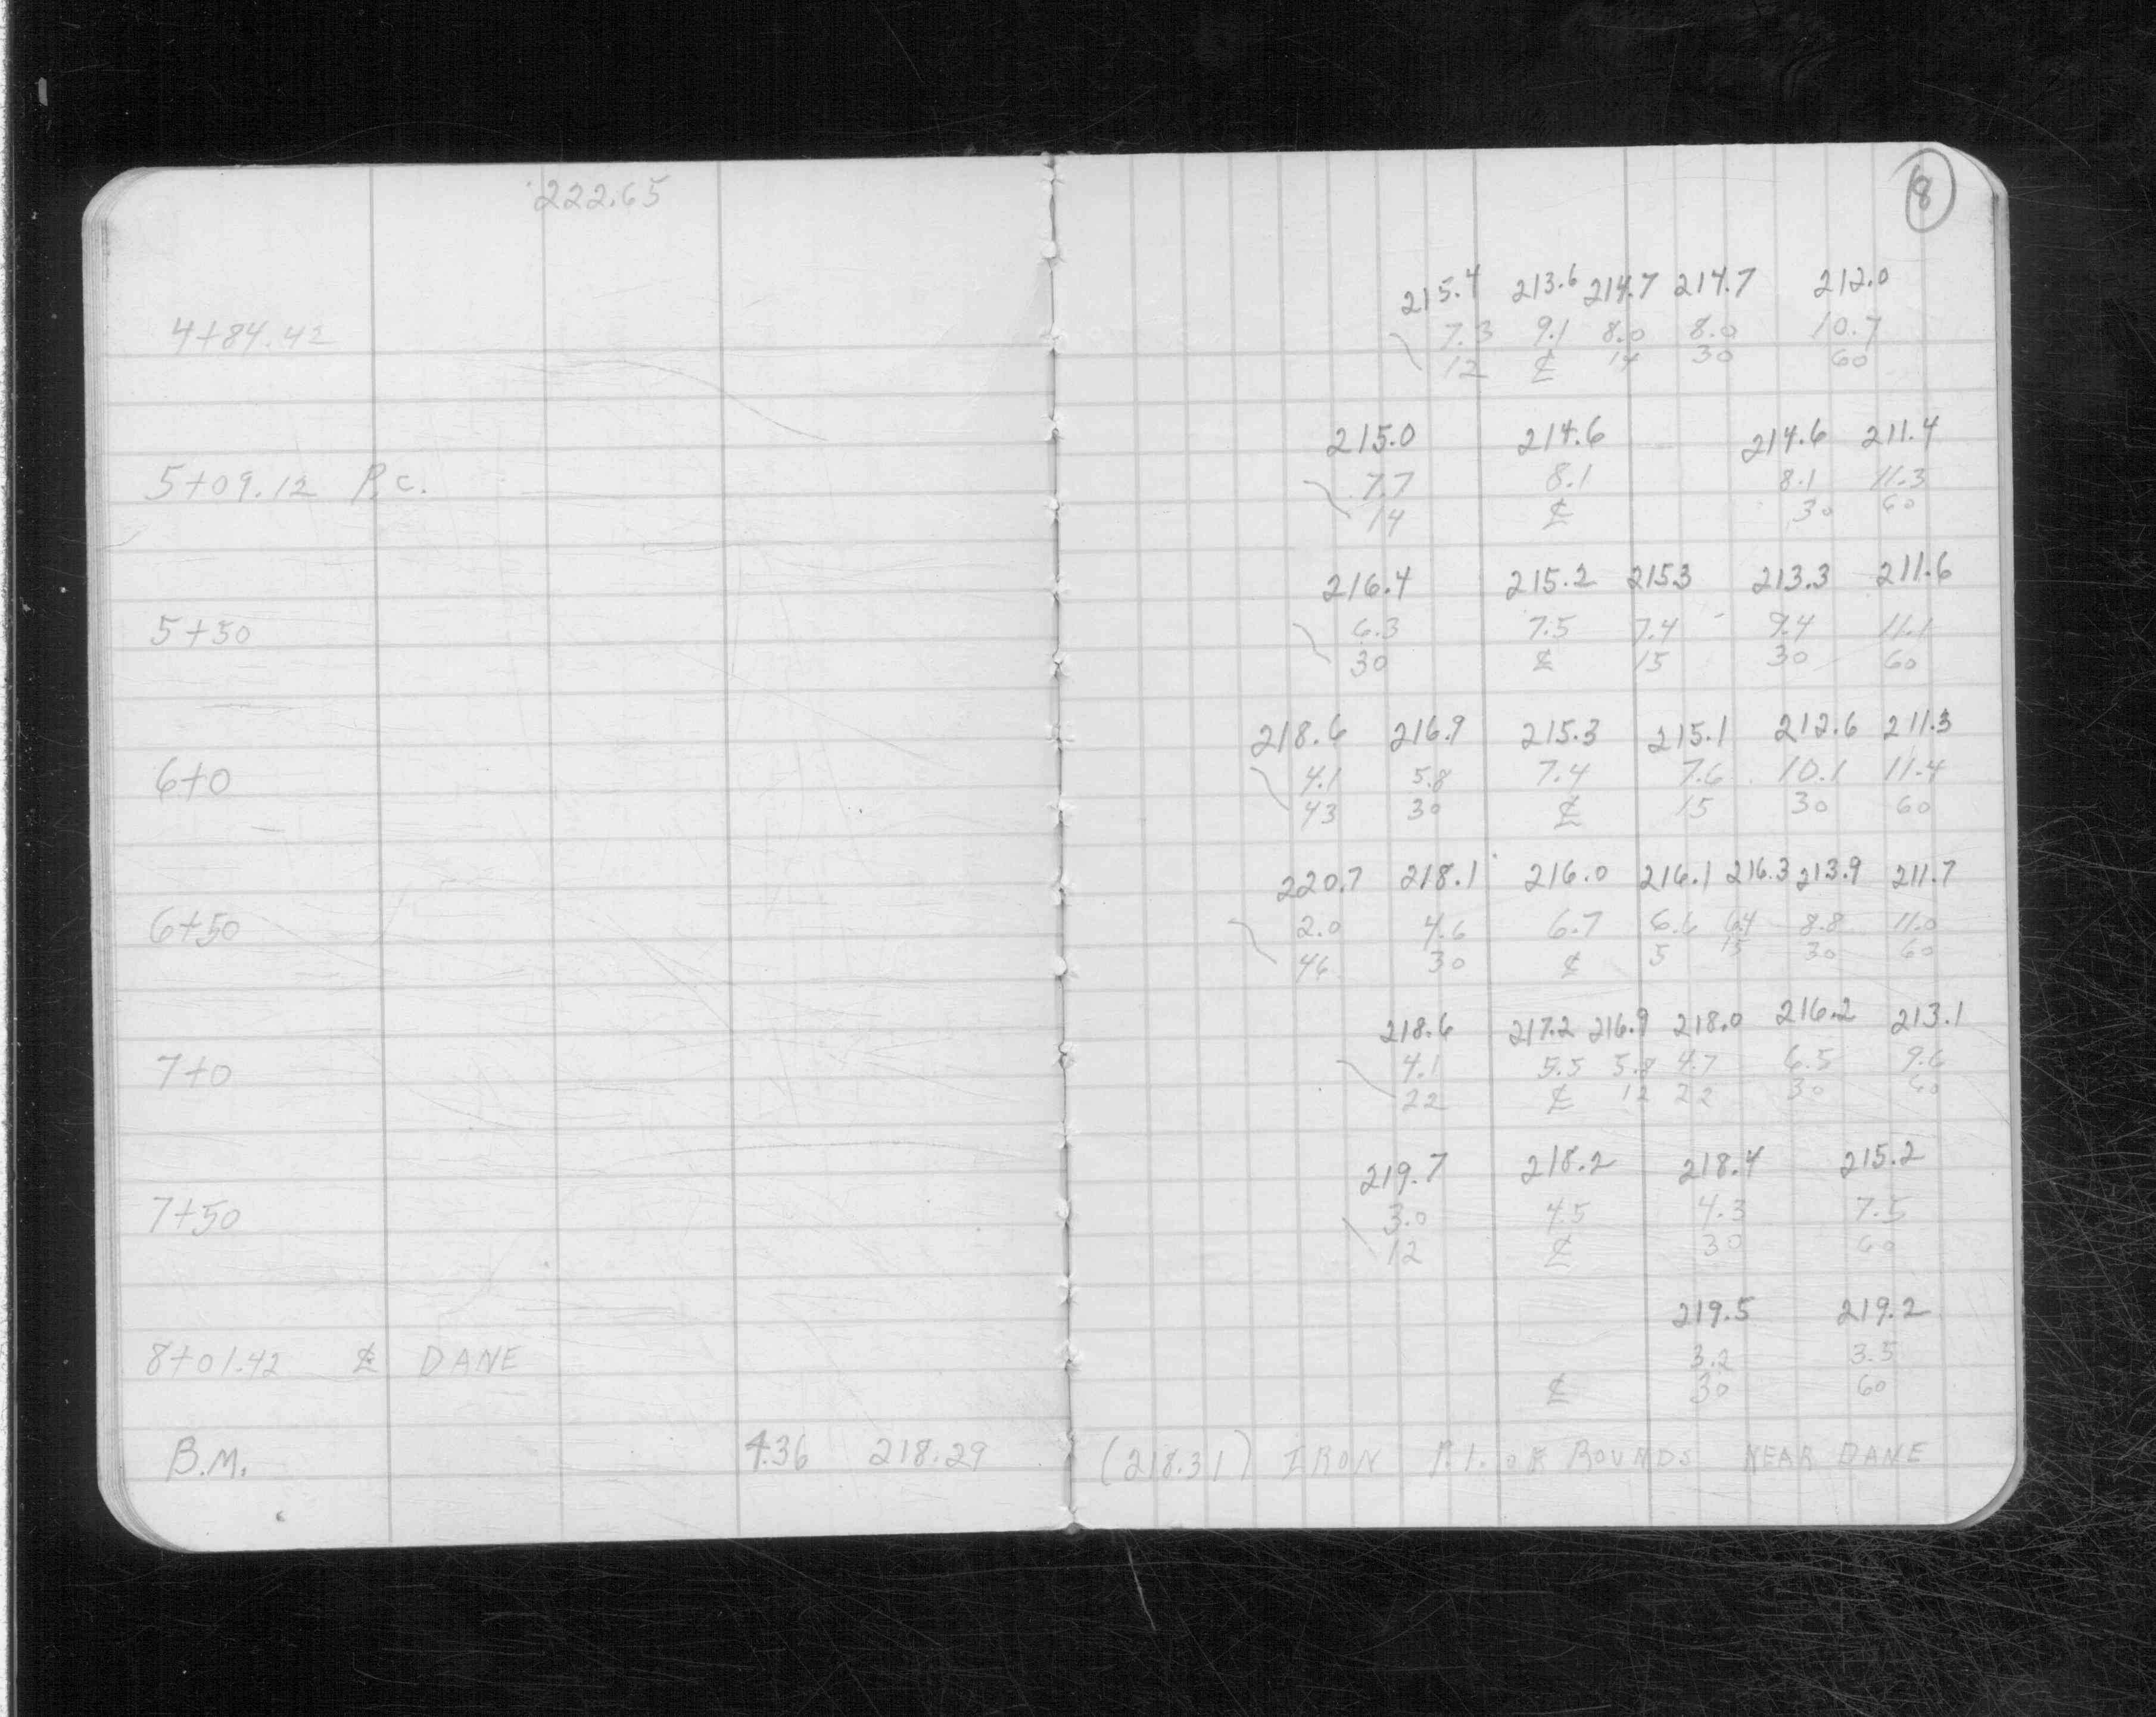 222.65
8
215.4 213.6 214.7 214.7 212.0
4+84.42 7.3 9.1 8.0 8.0 10.7
12 ℄ 14 30 60
215.0 214.6 214.6 211.4
5+09.12 P.C. 7.7 8.1 8.1 11.3
14 ℄ 30 60
216.4 215.2 215.3 213.3 211.6
5+50 6.3 7.5 7.4 9.4 11.1
30 ℄ 15 30 60
218.6 216.9 215.3 215.1 212.6 211.3
6+0 4.1 5.8 7.4 7.6 10.1 11.4
43 30 ℄ 15 30 60
220.7 218.1 216.0 216.1 216.3 213.9 211.7
6+50 2.0 4.6 6.7 6.6 6.4 8.8 11.0
46 30 ℄ 5 15 30 60
218.6 217.2 216.9 218.0 216.2 213.1
7+0 4.1 5.5 5.8 4.7 6.5 9.6
22 ℄ 12 22 30 60
219.7 218.2 218.4 215.2
7+50 3.0 4.5 4.3 7.5
12 ℄ 30 60
219.5 219.2
8+01.42 ℄ DANE 3.2 3.5
℄ 30 60
B.M. 4.36 218.29 (218.31) IRON P.I. OR ROUNDS NEAR DANE